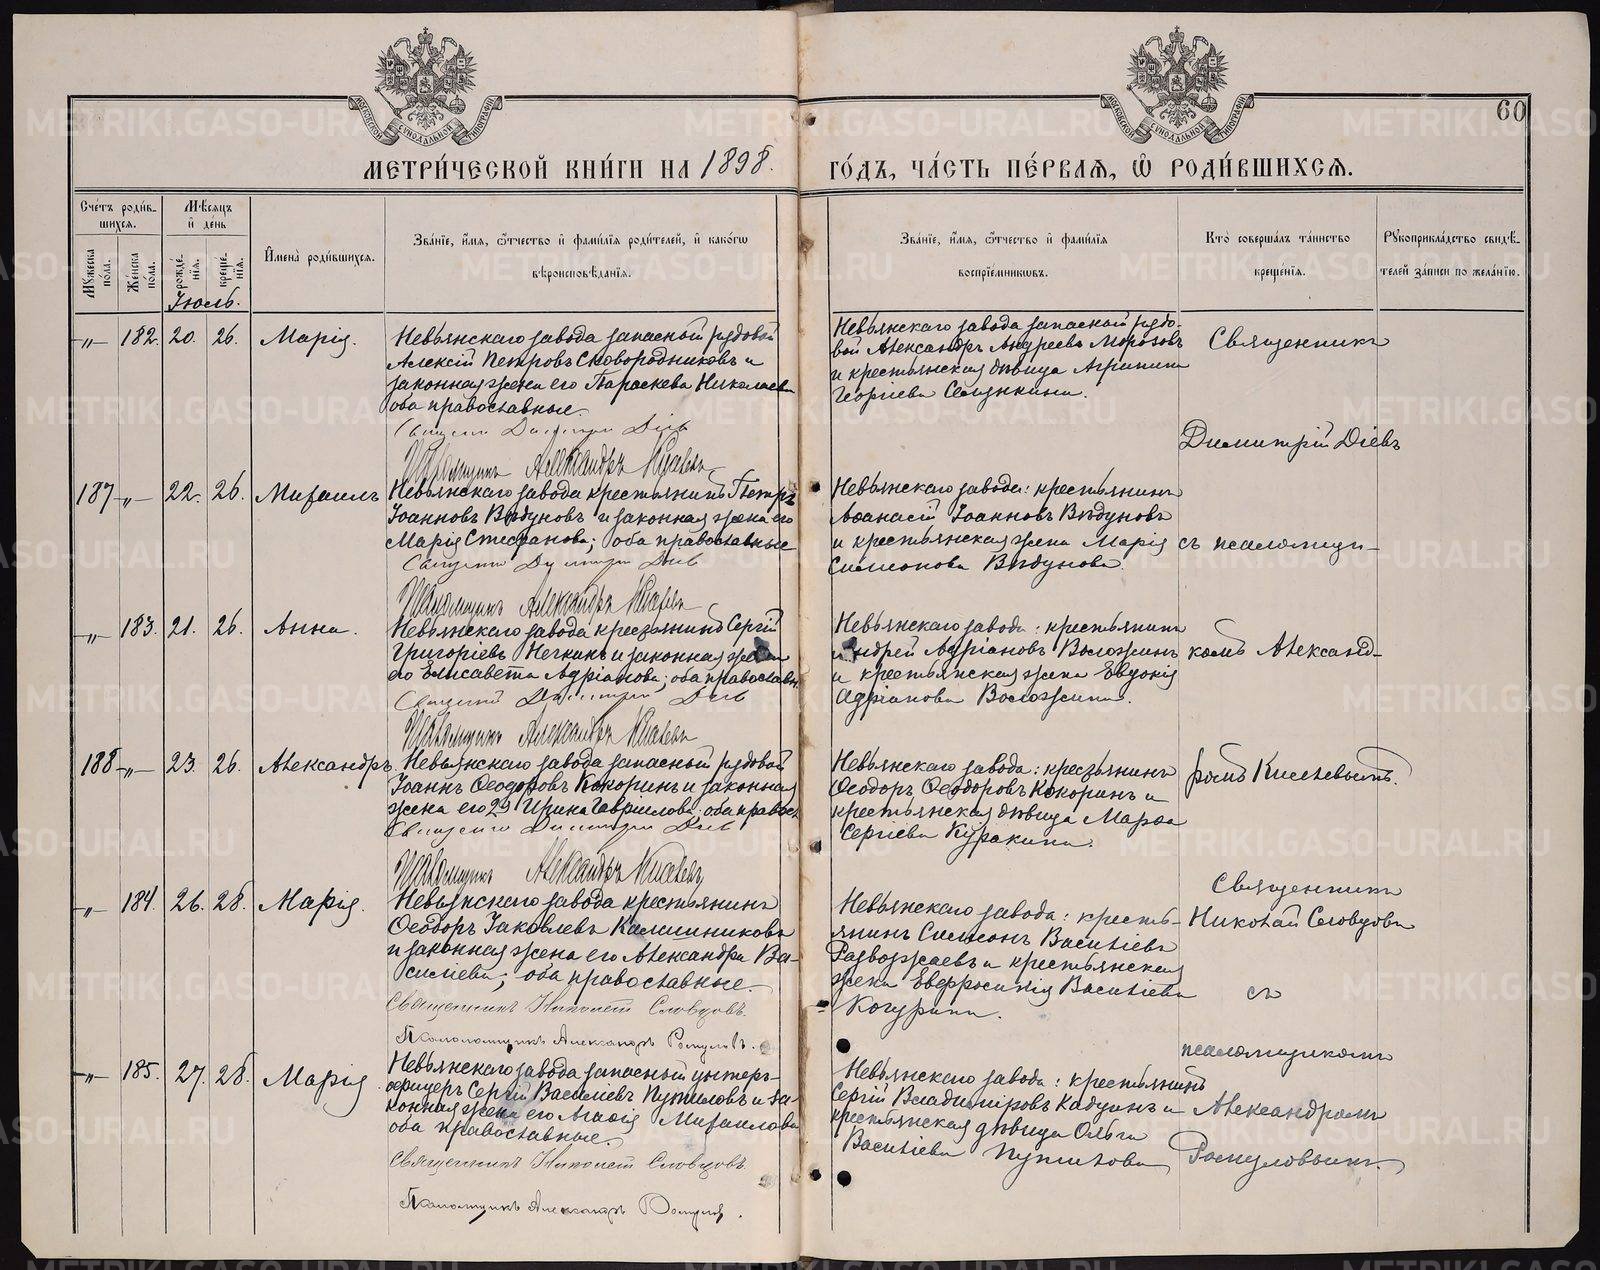 60
МЕТРИ́ЧЕСКОЙ КНИ́ГИ НА 1898. ГО́ДЪ, ЧА́СТЬ ПЕ́РВАѦ, Ѽ РОДИ́ВШИХСѦ.
Сче́тъ роди́в-
шихсѧ.
Мѣ́сѧцъ
и҆ де́нь
Мꙋ́жеска по́ла.
Же́нска по́ла.
рожде́-
нїѧ.
креще́-
нїѧ.
И҆мена̀ роди́вшихсѧ.
Зва́нїе, и҆́мѧ, ѻ҆́тчество и҆ фами́лїѧ роди́телей, и҆ како́гѡ
вѣроисповѣ́данїѧ.
Зва́нїе, и҆́мѧ, ѻ҆́тчество и҆ фами́лїѧ
воспрїе́мниковъ.
Кто̀ соверша́лъ та́инство
креще́нїѧ.
Рꙋкоприкла́дство свидѣ́-
телей за́писи по жела́нїю.
Іюль.
„ 182. 20. 26. Марія.
Невьянскаго завода запасный рядовой
Алексій Петровъ Сковородниковъ и
законная жена его Параскева Николаева
оба православные.
Священ Димитрій Діевъ
Псаломщикъ Александръ Киселевъ
Невьянскаго завода запасный рядо-
вой Александръ Андреевъ Морозовъ
и крестьянская дѣвица Агрипина
Георгіева
Священникъ
Димитрій Діевъ
187 „ 22. 26. Михаилъ
Невьянскаго завода крестьянинъ Петръ
Іоанновъ Вѣдуновъ и законная жена его
Марія Стефанова; оба православные
Священ Димитрій Діевъ
Псаломщикъ Александръ Киселевъ
Невьянскаго завода: крестьянинъ
Аѳанасій Іоанновъ Вѣдуновъ
и крестьянская жена Марія
Симеонова Вѣдунова
съ псаломщи-
„ 183. 21. 26. Анна.
Невьянскаго завода крестьянинъ Сергій
Григоріевъ Нечкинъ и законная жена
его Елисавета Адріанова; оба православн
Священ Димитрій Діевъ
Псаломщикъ Александръ Киселевъ
Невьянскаго завода: крестьянинъ
Андрей Адріановъ Воложинъ
и крестьянская жена Евдокія
Адріанова Воложина.
комъ Александ-
188 „ 23. 26. Александръ.
Невьянскаго завода запасный рядовой
Іоаннъ Ѳеодоровъ Кокоринъ и законная
жена его 2я Ирина Гавріилова; оба правос
Священ Димитрій Діевъ
Псаломщикъ Александръ Киселевъ
Невьянскаго завода: крестьянинъ
Ѳеодоръ Ѳеодоровъ Кокоринъ и
крестьянская дѣвица Марѳа
Сергіева Куракина.
ромъ Киселевымъ.
„ 184. 26. 28. Марія.
Невьянскаго завода крестьянинъ
Ѳеодоръ Іаковлевъ Калашниковъ
и законная жена его Александра Ва-
силіева; оба православные.
Священникъ Николай Словцовъ.
Псаломщикъ Александръ Ромуловъ.
Невьянскаго завода: кресть-
янинъ Симеонъ Василіевъ
Разводжаевъ и крестьянская
жена Евфросинія Василіева
Когурина.
Священникъ
Николай Словцовъ
съ
псаломщикомъ
„ 185. 27. 28. Марія
Невьянскаго завода запасный унтеръ-
офицеръ Сергій Василіевъ Путиловъ и за-
конная жена его Агаѳія Михаилова
оба православные.
Священникъ Николай Словцовъ
Псаломщикъ Александръ Ромулов.
Невьянскаго завода: крестьянинъ
Сергій Владиміровъ Кадцинъ и
крестьянская дѣвица Ольга
Василіева Путилова
Александромъ
Ромуловымъ.
METRIKI.GASO-URAL.RU